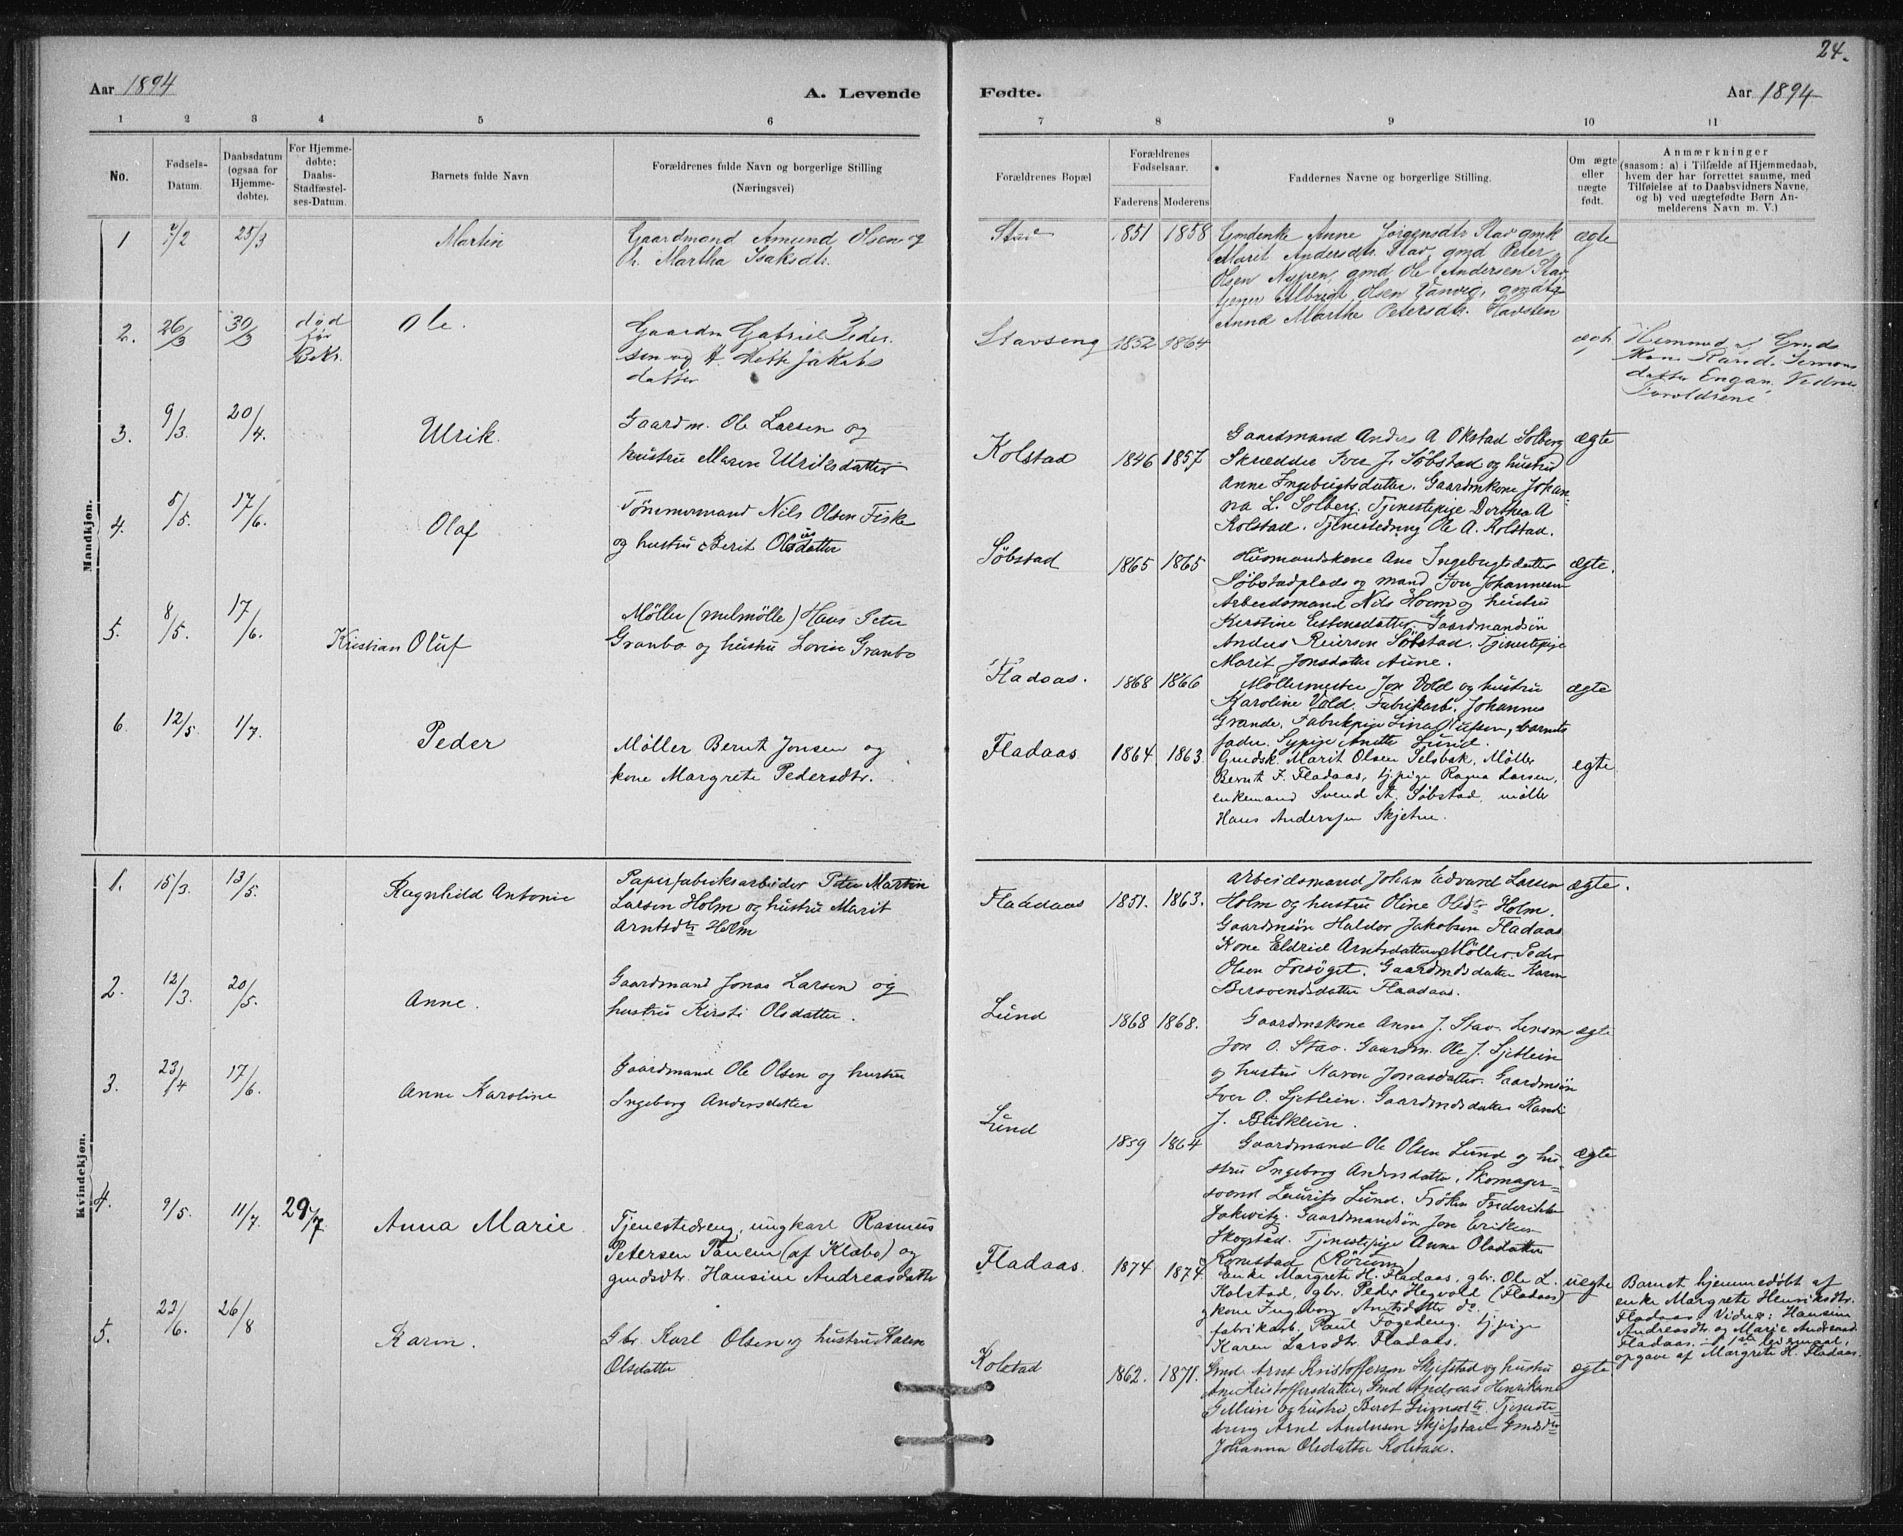 24.
Aar 1894
A. Levende
Fødte.
Aar 1894
1 2 3 4 5 6
7 8 9 10 11
No.
Fødsels-
Datum.
Daabsdatum
(ogsaa for
Hjemme-
døbte).
For Hjemme-
døbte:
Daabs-
Stadfæstel-
ses-Datum.
Barnets fulde Navn
Forældrenes fulde Navn og borgerlige Stilling
(Næringsvei)
Forældrenes Bopæl
Forældrenes
Fødselsaar.
Faderens Moderens
Faddernes Navne og borgerlige Stilling.
Om ægte
eller
uægte
født.
Anmærkninger
(saasom: a) i Tilfælde af Hjemmedaab,
hvem der har forrettet samme, med
Tilføielse af to Daabsvidners Navne,
og b) ved uægtefødte Børn An-
melderens Navn m. V.)
Mandkjøn.
1 7/2 25/3 Martin
Gaardmand Amund Olsen og
h. Martha Isaksdtr.
Stav 1851 1858
Gmdenke Anne Jørgensdtr Stav gmk
Marit Andersdtr. Stav, gmd Peter
Olsen Nypen, gmd Ole Andersen Stav
Albrigt Olsen
Anne Marthe Petersdtr. Havsten
ægte
2. 26/3 30/3 død
før
Bekr.
Ole.
Gaardm Gabriel Peder
sen og H. Mette Jakobs
datter
Stavseng 1852 1864
Hjemmed af Gmds
kone Randi Simons
datter Engan. Vidner
Forældrene
3. 9/3 20/4. Ulrik.
Gaardm. Ole Larsen og
hustru Maren Ulriksdatter
Kolstad 1846 1857
Gaardmand Anders A Okstad Solberg
Skrædder Iver J. Søbstad og hustru
Anne Ingebrigtsdatter. Gaardmkone Johan-
na L. Solberg. Tjenestepige Dorthea A
Kolstad. Tjenestedreng Ole A. Kolstad.
ægte
4. 5/5. 17/6. Olaf
Tønnemand Nils Olsen Fiske
og hustru Berit Olsdatter
Søbstad 1865 1865
Husmandskone Ane Ingebrigtsdatter
Søbstadplads og mand Iver Johannesen
Arbeidsmand Nils Hoem og hustru
Kerstine Estensdatter. Gaardmandsøn
Anders Reiersen Søbstad. Tjenestepige
Marit Jonsdatter Aune.
ægte.
5. 8/5. 17/6. Kristian Oluf
Møller (melmølle) Hans Peter
Granbo og hustru Lovise Granbo
Fladaas. 1868 1866
Møllermester Jon Vold og hustru
Karoline Vold. Fabrikarb. Johannes
Grande. Fabrikpige Lina Olufsen, barnets
fader. Sypige Anette Lund.
ægte
6 12/5. 1/7. Peder
Møller Bernt Jonsen og
kone Margrete Pedersdtr.
Fladaas 1864 1863.
Gmdsk. Marit Olsen Selsbak, Møller
Bernt J. Fladaas, tjpige Ragna Larsen,
enkemand Svend A. Søbstad, møller
Hans Anderssen Skjetne.
ægte
Kvindekjøn.
1. 15/3. 13/5. Ragnhild Antonie
Paperfabriksarbeider Peter Martin
Larsen Holm og hustru Marit
Arntsdtr Holm
Flaadaas 1851. 1863.
Arbeidsmand Johan Edvard Larsen
Holm og hustru Oline Olsdtr Holm.
Gaardmsøn Haldor Jakobsen Fladaas
Kone Eldrid Arntsdatter Møller Peder
Olsen Forsøget. Gaardmdsdatter Karen
Bersvendsdatter Flaadaas.
ægte.
2. 12/3. 20/5. Anne.
Gaardmand Jonas Larsen og
hustru Kirsti Olsdatter.
Lund 1868 1868.
Gaardmskone Anne J. Stav. Lensm
Jon O. Stav. Gaardm. Ole J. Sjetlein
og hustru Maren Jonasdatter. Gaardmsøn
Iver O. Sjetlein. Gaardmdsdatter Randi
J. Busklein.
ægte
3. 23/4 17/6. Anne Karoline
Gaardmand Ole Olsen og hustru
Ingeborg Andersdatter
Lund 1859 1864
Gaardmand Ole Olsen Lund og hu-
stru Ingeborg Andersdatter. Skomager-
svend Laurits Lund. Frøken Frederikke
Jakwitz. Gaardmandsøn Jon Eriksen
Skogstad. Tjenestepige Anne Olsdatter
Romstad (Rørum)
ægte
4. 9/5. 11/7. 29/7. Anna Marie
Tjenestedreng, ungkarl Rasmus
Petersen Tanem (af Klæbo) og
gmdsdtr. Hansine Andreasdatter
Fladaas. 1874 1874
Enke Margrete H. Fladaas, gbr. Ole L.
Kolstad, gbr. Peder Hegvold (Fladaas)
og kone Ingeborg Arntsdatter do
fabrikarb. Paul Fogedeng. tjpige
Karen Larsdtr. Fladaas.
uegte
Barnet hjemmedøbt af
enke Margrete Henriksdtr.
Fladaas. Vidner: Hansine
Andreasdtr. og Marie Andreasd.
Fladaas. 1ste leiermaal.
opgave af Margrete H. Fladaas.
5. 22/6. 26/8 Karen.
Gbr. Karl Olsen og hustru Karen
Olsdatter
Kolstad 1862. 1871.
Gmd. Arnt Kristoffersen Skjefstad og hustru
Ane Kristoffersdatter, Gmd Andreas Henriksen
og hustru Beret Tjeneste-
dreng Arnt Andersen Skjefstad Gmdsdtr
Johanna Olsdatter Kolstad.
ægte